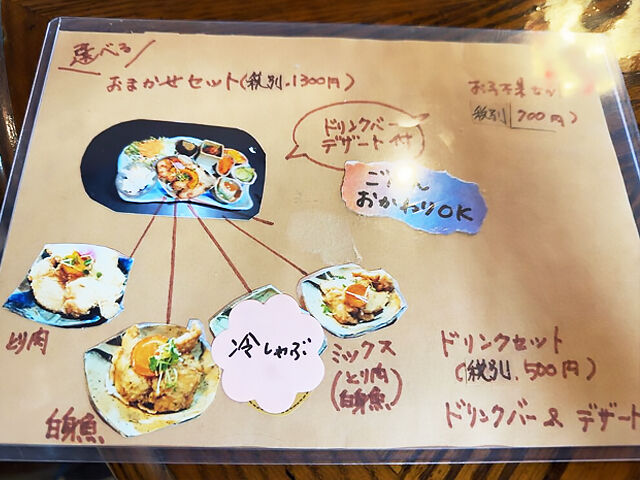 選べる
おまかせセット(税別.1300円)
お子不菜なし
税別 700円)
ドリンクバー
デザート付
ごはん
おかわりOK
とり肉
白身魚
冷しゃぶ
ミックス
(とり肉
白身魚)
ドリンクセット
(税別.500円)
ドリンクバー & デザート